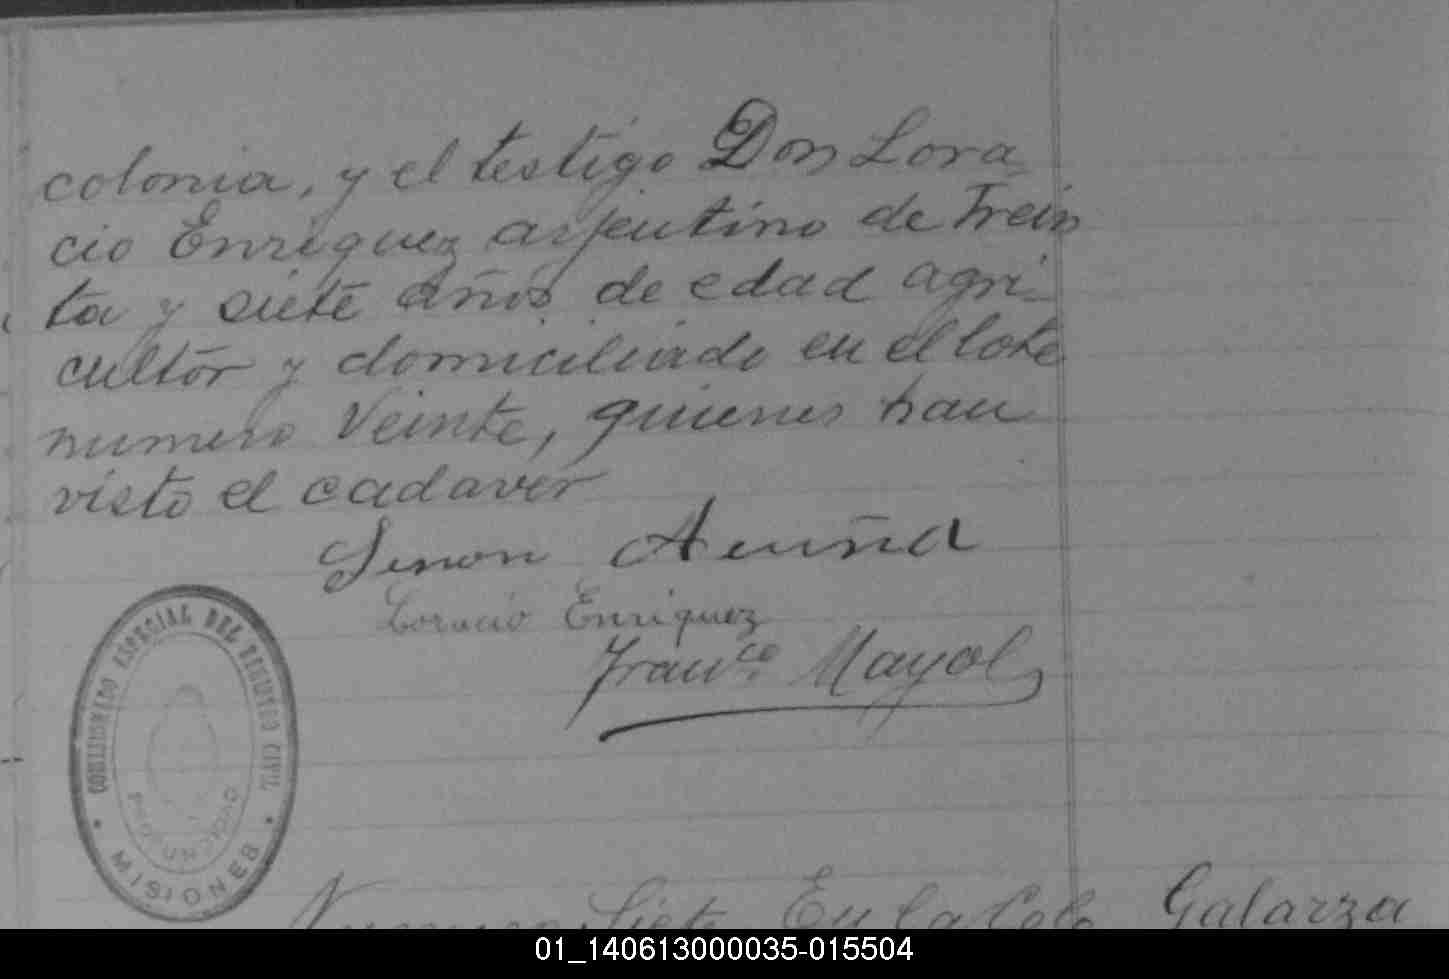 colonia, y el testigo Don Lora
cio Enriquez arjentino de Trein
ta y siete años de edad agri_
cultor y domiciliado en el lote
numero Veinte, quienes han
visto el cadaver
Senon Acuña
Loracio Enriquez
Franco Mayol
COMISARIADO ESPECIAL DEL REGISTRO CIVIL
MISIONES
Numero Siete En la Colo
Galarza
01_140613000035-015504